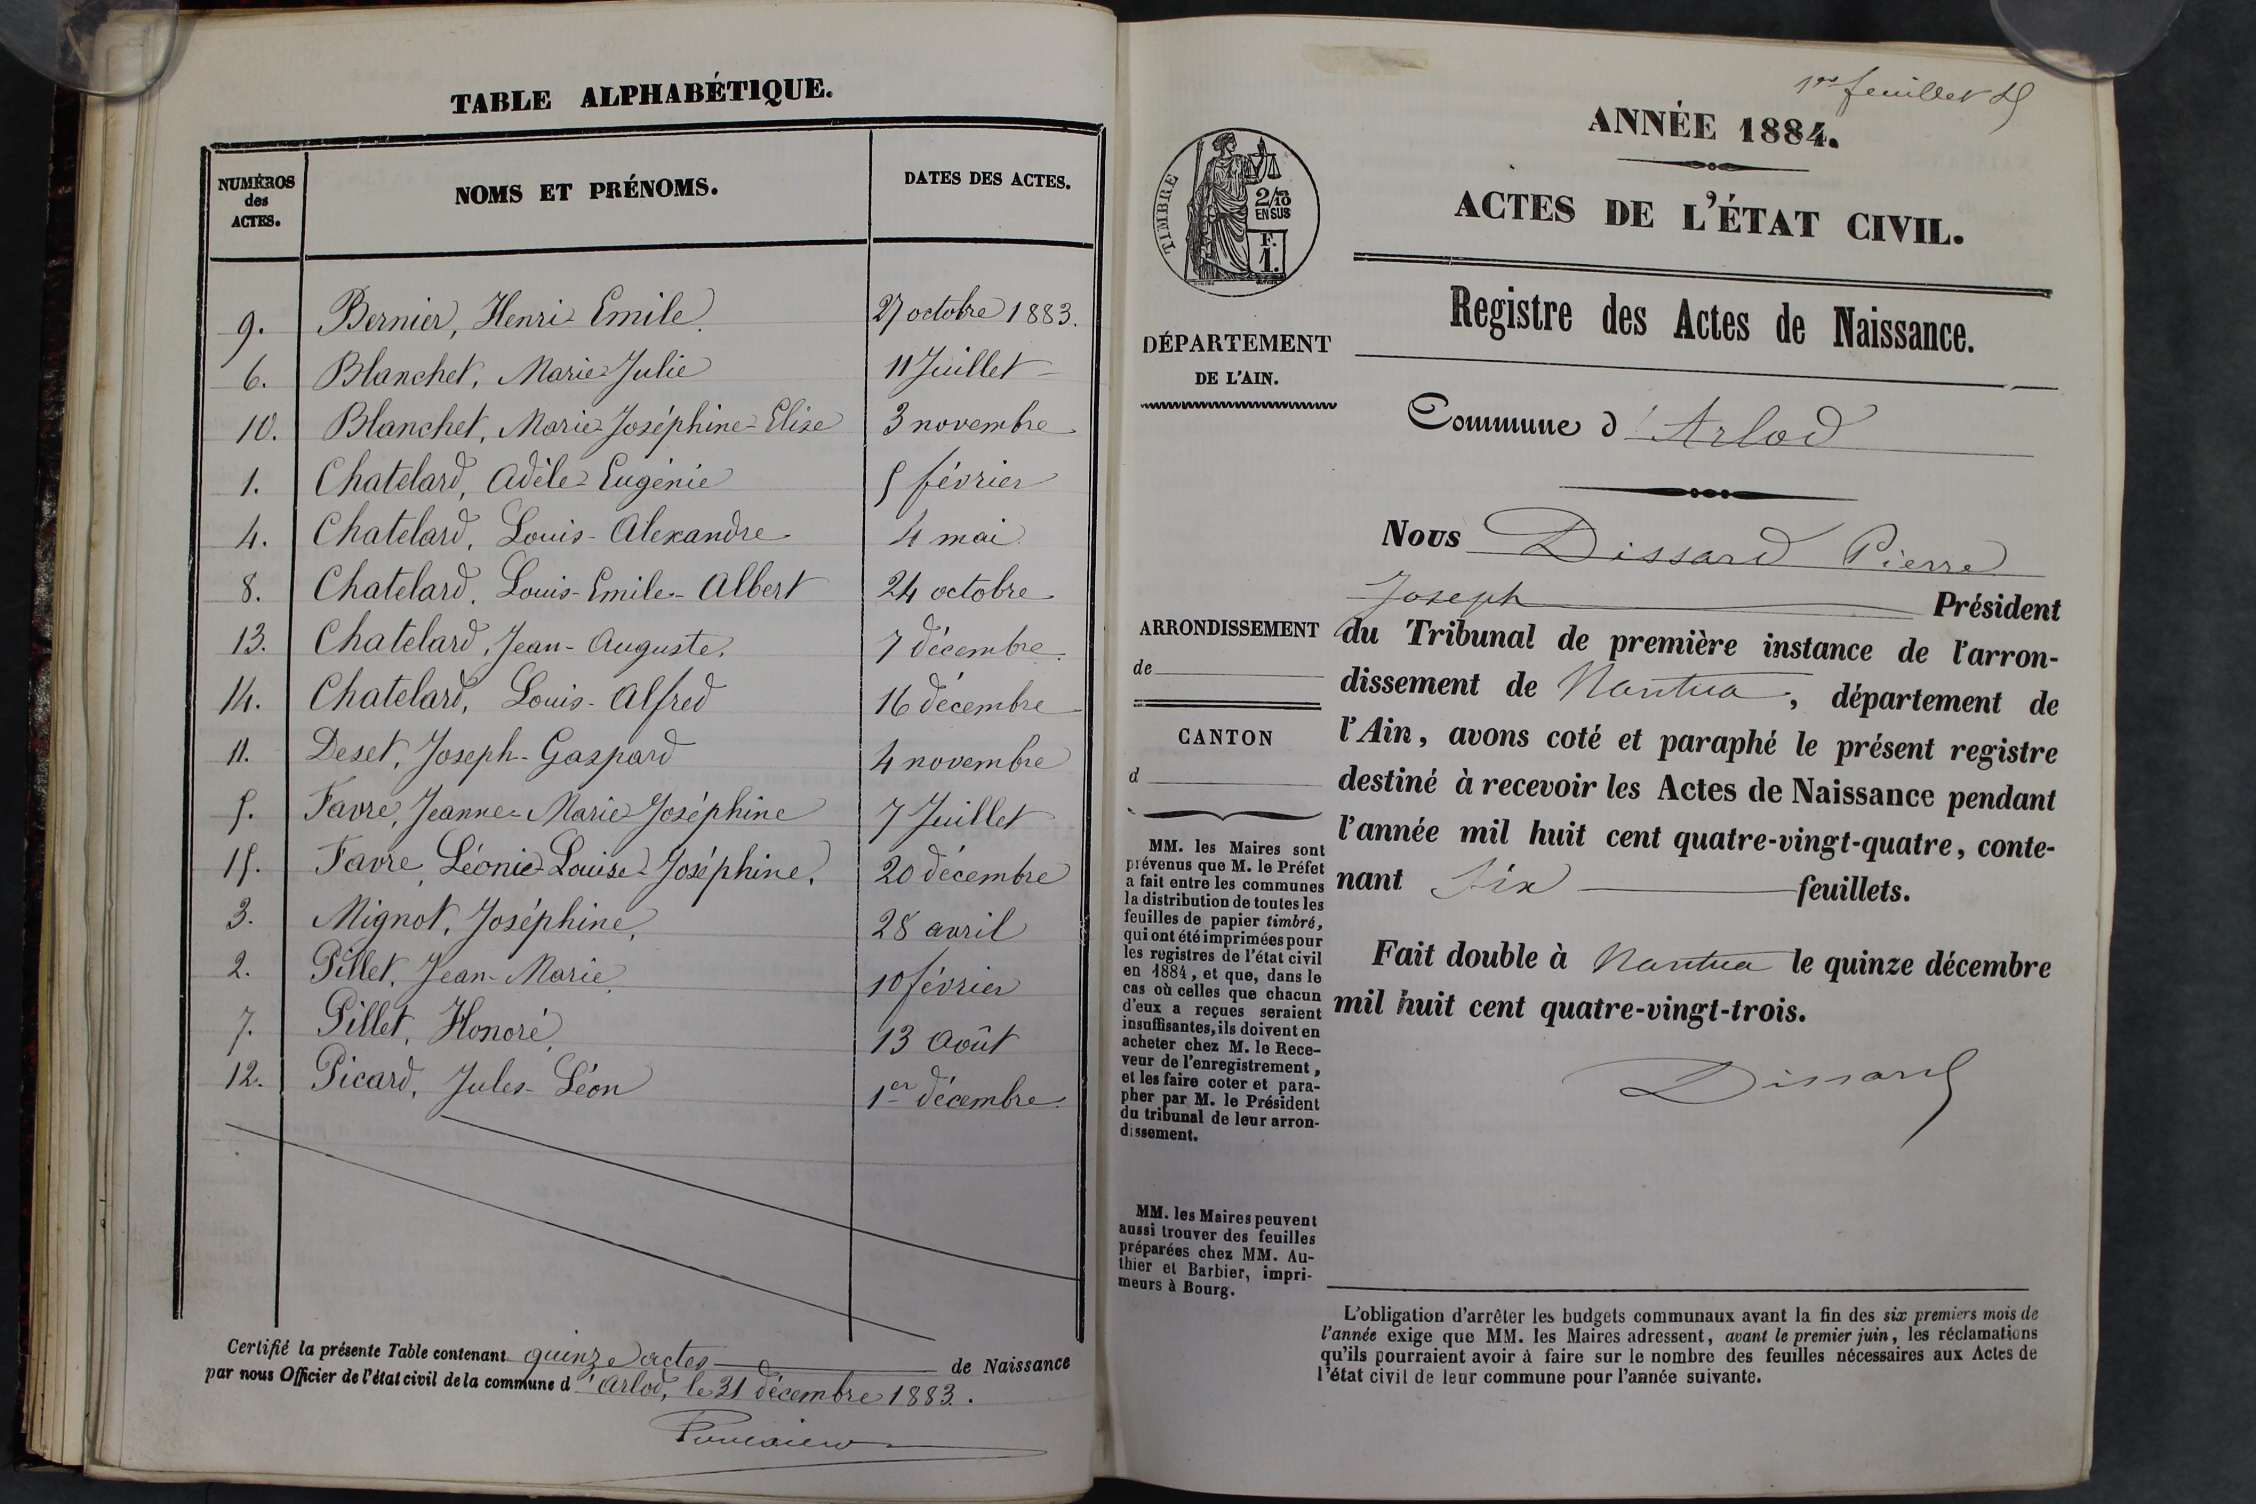 TABLE ALPHABÉTIQUE.
NUMÉROS
des
ACTES.
NOMS ET PRÉNOMS.
DATES DES ACTES.
9. Bernier, Henri Emile 27 octobre 1883.
6. Blanchet, Marie Julie 11 Juillet
10. Blanchet, Marie Joséphine Elise 3 novembre
1. Chatelard, Adèle Eugénie 5 février
4. Chatelard, Louis-Alexandre 4 mai
8. Chatelard, Louis-Emile-Albert 24 octobre
13. Chatelard, Jean-Auguste. 7 décembre.
14. Chatelard, Louis-Alfred 16 décembre
11. Deset, Joseph-Gaspard 4 novembre
5. Favre, Jeanne-Marie Joséphine 7 Juillet
15. Favre, Léonie-Louise-Joséphine. 20 décembre
3. Mignot, Joséphine, 28 avril
2. Pillet, Jean-Marie, 10 février
7. Pillet, Honoré, 13 Août
12. Picard, Jules-Léon 1er décembre.
Certifié la présente Table contenant quinze actes de Naissance
par nous Officier de l'état civil de la commune d'Arlod, le 31 décembre 1883.
1er feuillet
ANNÉE 1884.
ACTES DE L'ÉTAT CIVIL.
Registre des Actes de Naissance.
TIMBRE
2/10
EN SUS
F.
1.
DÉPARTEMENT
DE L'AIN.
Commune d'Arlod
Nous Dissard Pierre
Joseph Président
du Tribunal de première instance de l'arron-
dissement de Nantua, département de
l'Ain, avons coté et paraphé le présent registre
destiné à recevoir les Actes de Naissance pendant
l'année mil huit cent quatre-vingt-quatre, conte-
nant six feuillets.
Fait double à Nantua le quinze décembre
mil huit cent quatre-vingt-trois.
Dissard
ARRONDISSEMENT
de
CANTON
d
MM. les Maires sont
prévenus que M. le Préfet
a fait entre les communes
la distribution de toutes les
feuilles de papier timbré,
qui ont été imprimées pour
les registres de l'état civil
en 1884, et que, dans le
cas où celles que chacun
d'eux a reçues seraient
insuffisantes, ils doivent en
acheter chez M. le Rece-
veur de l'enregistrement,
et les faire coter et para-
pher par M. le Président
du tribunal de leur arron-
dissement.
MM. les Maires peuvent
aussi trouver des feuilles
préparées chez MM. Au-
thier et Barbier, impri-
meurs à Bourg.
L'obligation d'arrêter les budgets communaux avant la fin des six premiers mois de
l'année exige que MM. les Maires adressent, avant le premier juin, les réclamations
qu'ils pourraient avoir à faire sur le nombre des feuilles nécessaires aux Actes de
l'état civil de leur commune pour l'année suivante.